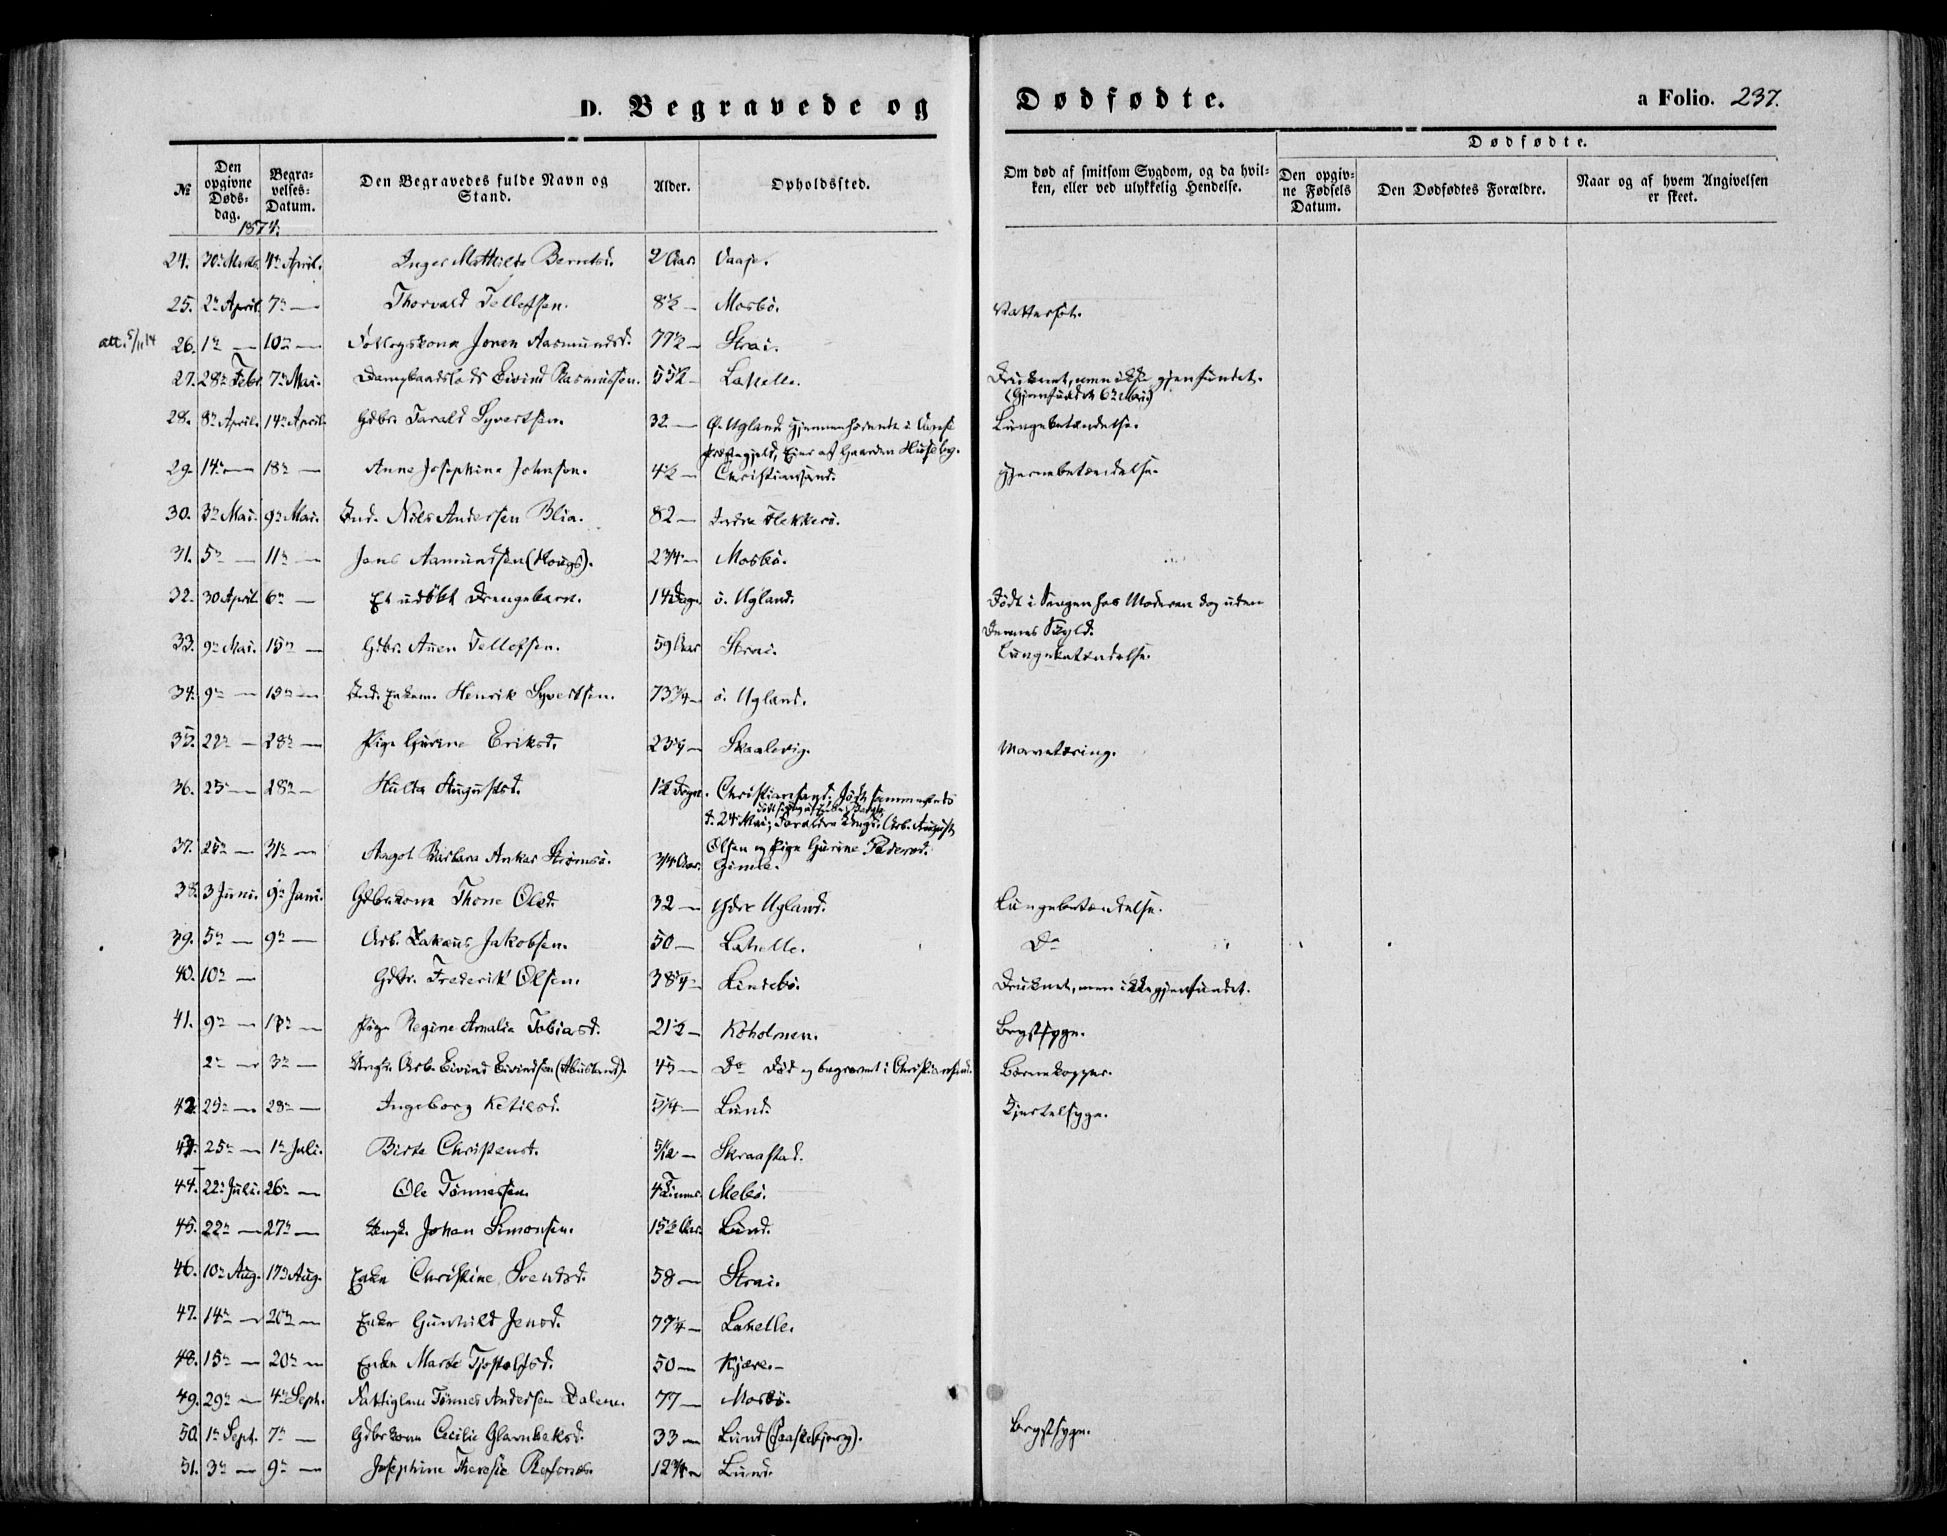 D. Begravede og Dødfødte. a Folio. 237.
Dødfødte.
№ Den opgivne Døds-dag. Begra-velses-Datum. Den Begravedes fulde Navn og Stand. Alder. Opholdssted. Om død af smitsom Sygdom, og da hvil-ken, eller ved ulykkelig Hendelse. Den opgiv-ne Fødsels Datum. Den Dødfødtes Forældre. Naar og af hvem Angivelsen er skeet.
1874.
24. 30te Marts. 4de April. Inger Mathilde Berntsd. 2 Aar. Vaaje.
25. 2n April. 7n — Thorvald Tellefsen. 8½ — Mosbö.
att. 5/11 14 26. 1n — 10n — Joren Aasmundsd. 77½ — Strai.
27. 28n Febr. 7n Mai. Eivind Rasmussen. 55½ — Lahelle. Druknet, men ikke gjenfundet.
(Gjenfundet 6n Mai)
28. 8n April. 14n April. Gdbr. Tarald Syvertsen. 32 — Ø. Ugland Lungebetændelse.
Præstegjeld, Eier af Gaarden Huseby.
29. 14n — 18n — Anne Josephine Johnsen. 4½ — Christianssand. Hjernebetændelse.
30. 3n Mai. 9n Mai. Ind. Nils Andersen Blia. 82 — Indre Flekkerö.
31. 5n — 11n — Jens Aamundsen (Hougs). 2¾ — Mosbö.
32. 30 April. 6n — Et udöbt Drengebarn. 14 Dage. ö. Ugland. Død i Sengen hos Moderen dog uden
Dennes Skyld.
33. 9n Mai. 15n — Gdbr. Auen Tellefsen. 59 Aar Strai. Lungebetændelse.
34. 9n — 15n — Ind. Enkem. Henrik Syvertsen. 73¾ — ö. Ugland.
35. 22n — 28n — Pige Gurine Eriksd. Skaalevig. Marvetæring.
36. 25 — 28n — Hulta Augustsd. 1½ Døgn. Christianssand. Född sammesteds
d. 24 Mai; Forældre Ungk. Arb. August
Olsen og Pige Gurine Pedersd.
37. 31n — Aagot Barbara Anker Strömsö. ¾ Aar. Gimle.
38. 3 Juni. 9n Juni. Gdbrkone Thone Olsd. 32 — Ydre Ugland. Lungebetændelse.
39. 5n — 9n — Arb. Zakæus Jakobsen. 50 — Lahelle. Do
40. 10n — Gdbr. Frederik Olsen. Lindebö. Druknet, men ikke gjenfundet.
41. 9n — 17n — Pige Regine Amalie Tobiasd. 21½ — Koholmen. Brystsyge.
2n — 3n — Ungk. Arb. Eivind Eivindsen (Abusland). 45 — Do Död og begravet i Christianssand. Börnekopper.
42 25n — 28n — Ingeborg Ketilsd. 5¼ — Lund. Kjertelsyge.
43. 25n — 1n Juli. Birte Christensd. 5/12 — Skraastad.
44. 22n Juli. 26n — Ole Tönnessen. 4 Timer. Mebö.
45. 22n — 27n — Ungk. Johan Simonsen. 15½ Aar. Lund.
46. 10n Aug. 17n Aug. Enke Christine Svendsd. 58 — Strai.
47. 14n — 20n — Enke Gunhild Jensd. 77¼ — Lahelle.
48. 15n — 20n — Enke Marte Tjostolfsd. 50 — Kjære. —
49. 29n — 4n Sept. Fattiglem Tönnes Andersen Dalene. 77 — Mosbö.
50. 1n Sept. 7n — Gdbrkone Cecilie Glamheksd. 33 — Lund (Paaskebjerg). Brystsyge.
51. 3n — 9n — Josephine Theresie Refsnes. 12¾ — Lund.